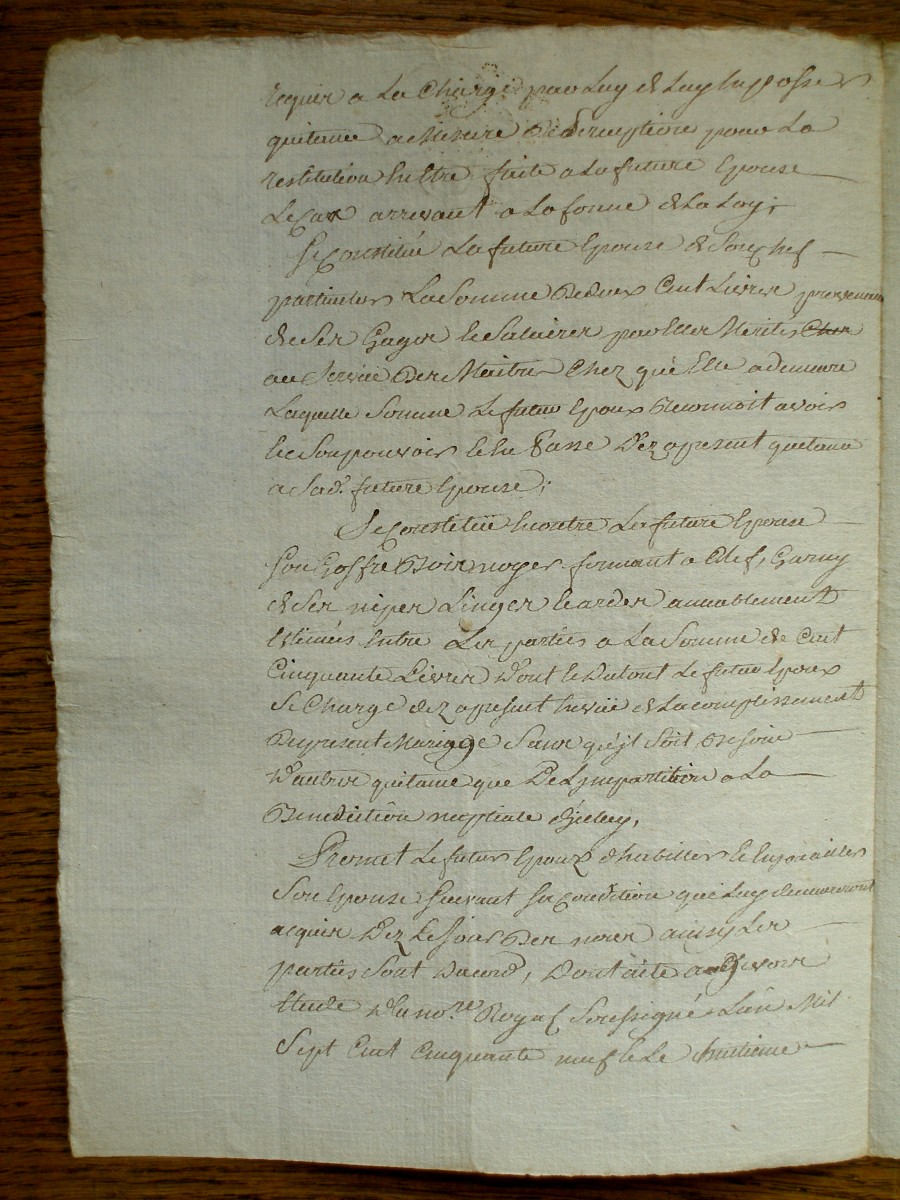 requis a La Charge par Luy de Luy en passer
quitance a Mesure de perception pour La
restitution En Etre faite a La future Epouse
Le Cas arrivant a La forme de La Loy;
Se Constitue La future Epouse de Son Chef
particulier La Somme de deux Cent Livres provenue
de Ses Gages et Salaires par Elle Merités
au Service des Maitres Chez qui Elle a demeuré
Laquelle Somme Le futur Epoux Reconnoit avoir
En Son pouvoir et En Passe Dez apresent quitance
a Sad.e future Epouse;
Se Constitue En outre La future Epouse
Son Coffre Bois noyer fermant a Clef, Garny
de Ses nipes Linges et ardes amiablement
Estimés Entre Les parties a La Somme de Cent
Cinquante Livres Dont et Du tout Le futur Epoux
Se Charge dez apresent En vüe de L'acomplissement
Du present Mariage Sans qu'jl Soit Besoin
D'autre quitance que De L'jmpartition a La
Benediction nuptiale d'jceluy,
Promet Le futur Epoux d'habiller et
Son Epouse Suivant Sa Condition que Luy demeureront
acquis Dez Le Jour Des noces ainsy Les
parties Sont D'acord, Dont acte a Givors
Etude Du no.re Royal Soussigné L'an Mil
Sept Cent Cinquante neuf et Le huitieme